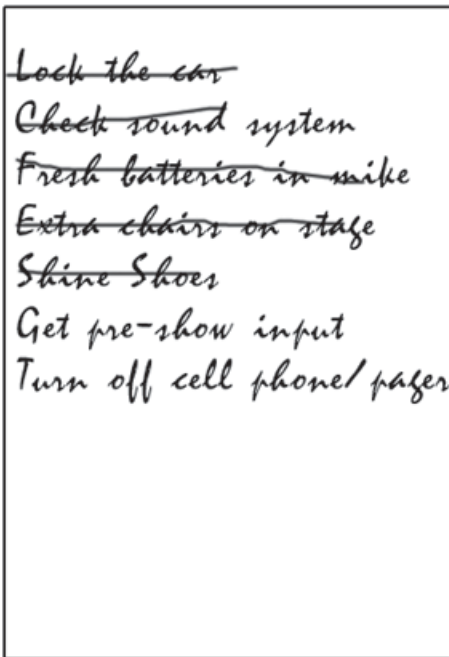 Lock the car
Check sound system
Fresh batteries in mike
Extra chairs on stage
Shine Shoes
Get pre-show input
Turn off cell phone/pager